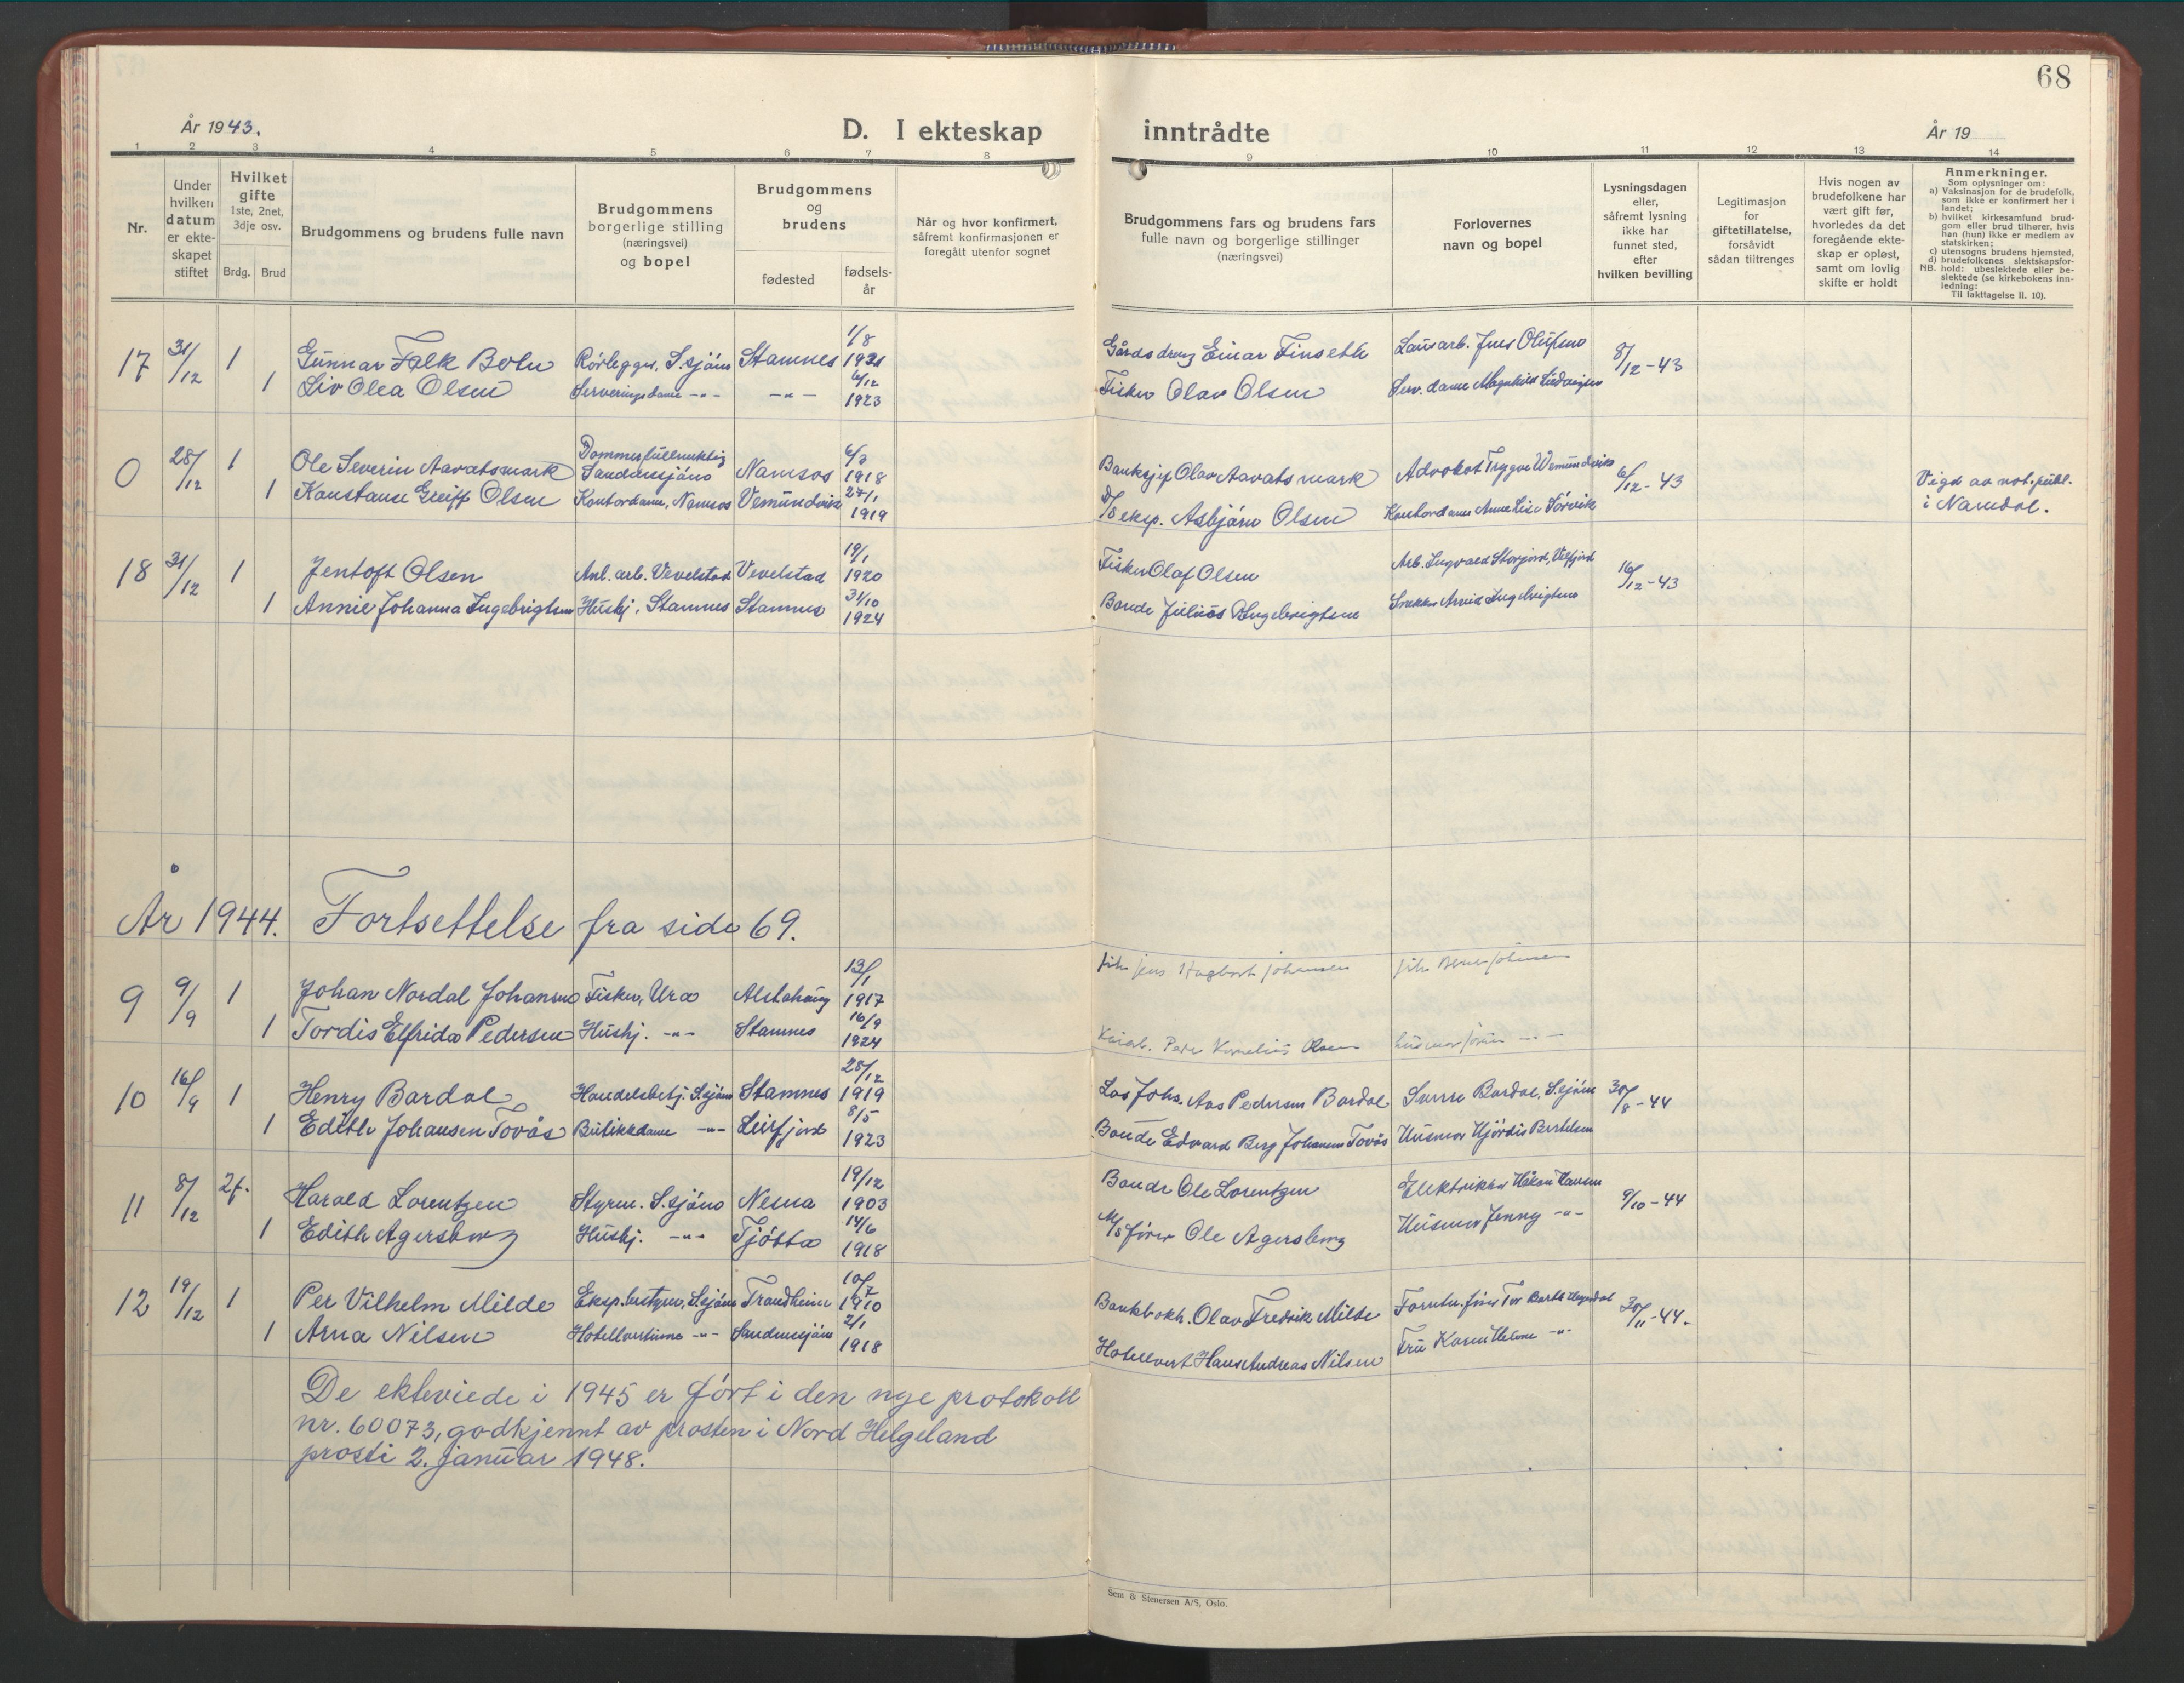 68
År 1943.
D. I ekteskap inntrådte
År 19
1 2 3 4 5 6 7 8 9 10 11 12 13 14
Nr.
Under
hvilken
datum
er ekte-
skapet
stiftet
Hvilket
gifte
1ste, 2net,
3dje osv.
Brdg. Brud
Brudgommens og brudens fulle navn
Brudgommens
borgerlige stilling
(næringsvei)
og bopel
Brudgommens
og
brudens
fødested
fødsels-
år
Når og hvor konfirmert,
såfremt konfirmasjonen er
foregått utenfor sognet
Brudgommens fars og brudens fars
fulle navn og borgerlige stillinger
(næringsvei)
Forlovernes
navn og bopel
Lysningsdagen
eller,
såfremt lysning
ikke har
funnet sted,
efter
hvilken bevilling
Legitimasjon
for
giftetillatelse,
forsåvidt
sådan tiltrenges
Hvis nogen av
brudefolkene har
vært gift før,
hvorledes da det
foregående ekte-
skap er opløst,
samt om lovlig
skifte er holdt
Anmerkninger.
Som oplysninger om:
a) Vaksinasjon for de brudefolk,
som ikke er konfirmert her i
landet;
b) hvilket kirkesamfund brud-
gom eller brud tilhører, hvis
han (hun) ikke er medlem av
statskirken;
c) utensogns brudens hjemsted,
d) brudefolkenes slektskapsfor-
NB. hold: ubeslektede eller be-
slektede (se kirkebokens inn-
ledning:
Til iakttagelse II. 10).
17 31/12 1 Gunnar Falk Rørlegger, S.sjøen Stamnes 1/8 1921 Einar Finseth 8/12-43
1 Liv Olea Olsen Serveringsdame -"- -"- 6/12 1923 Fisker Olav Olsen Serv. dame
0 28/12 1 Ole Severin Aavatsmark Dommerfullmektig Sandnessjøen Namsos 1918 Banksjef Olav Aavatsmark Advokat Trygve 6/12-43 Vigd av not. publ.
1 Konstanse Greiff Olsen Kontordame, Namsos Vemundvik 27/1 1919 D/S eksp. Asbjørn Olsen Kontordame Anne Lise Sørvik i Namdal.
18 31/12 1 Jentoft Olsen Anl. arb. Vevelstad Vevelstad 19/1 1920 Fisker Olaf Olsen Arb. Ingvald Storjord, Velfjord 16/12-43
1 Annie Johanna Ingebrigtsen Hushj, Stamnes Stamnes 31/10 1924 Bonde Julius Ingebrigtsen Snekker Arvid Ingebrigtsen
År 1944. Fortsettelse fra side 69.
9 9/9 1 Johan Nordal Johansen Fisker, Ura Alstahaug 13/1 1917 fisk. Jens Hagbart Johansen
1 Tordis Elfrida Pedersen Hushj. -"- Stamnes 16/9 1924 Peder Kornelius Olsen
10 16/9 1 Henry Bardal Handelsbetj. S.sjøen Stamnes 28/12 1919 Los Johs. Aas Pedersen Bardal Sverre Bardal, S.sjøen 30/8-44
1 Edith Johansen Tovås Butikkdame -"- Leirfjord 8/5 1923 Bonde Edvard Berg Johansen Tovås Husmor Hjørdis Bertelsen
11 8/12 2g. Harald Lorentzen Styrm. S.sjøen Nesna 19/12 1903 Bonde Ole Lorentzen Elektriker Håkon Hansen 9/10-44
1 Edith Agersborg Hushj. -"- Tjøtta 14/6 1918 M/S fører Ole Agersborg Husmor Jenny -"-
12 19/12 1 Per Vilhelm Milde Eksp.bestyrer, S.sjøen Trondheim 10/7 1910 Bankbokh. Olav Fredrik Milde 30/11-44.
1 Arna Nilsen Hotellvertinne -"- Sandnessjøen 2/1 1918 Hotellvert Hans Andreas Nilsen Fru Karen Helene -"-
De ekteviede i 1945 er ført i den nye protokoll
nr. 60073, godkjennt av prosten i Nord Helgeland
prosti 2. januar 1948.
Sem & Stenersen A/S, Oslo.